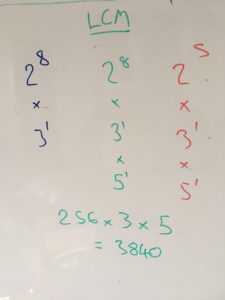 LCM
2⁸ 2⁸ 2⁵
× × ×
3¹ 3¹ 3¹
× ×
5¹ 5¹
256 × 3 × 5
= 3840